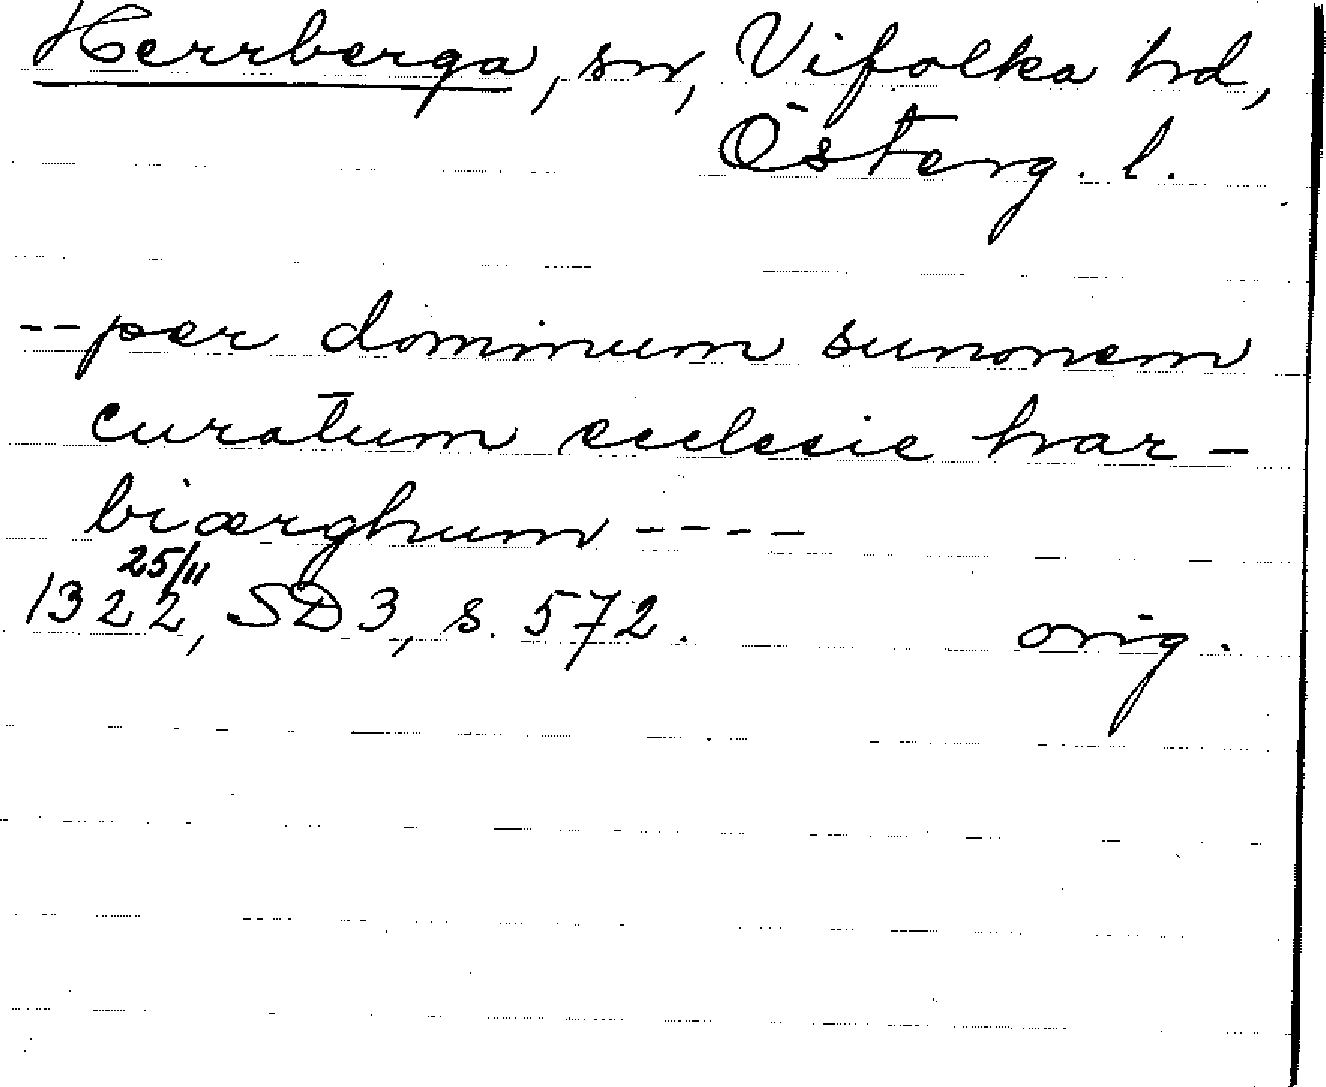 Herrberga, sn, Vifolka hd,
Österg. l.
--per dominum sunonem
curatum ecclesie har-
biærghum ----
25/11
1322, SD3, s. 572. orig.